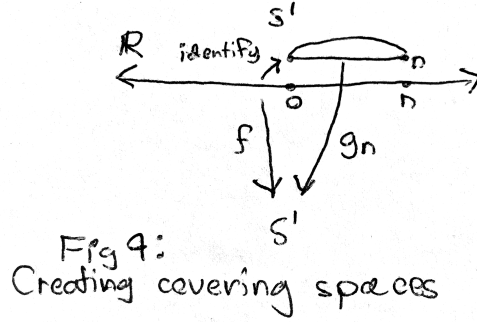 S'
ℝ identify n
0 n
f gn
S'
Fig 9:
Creating covering spaces